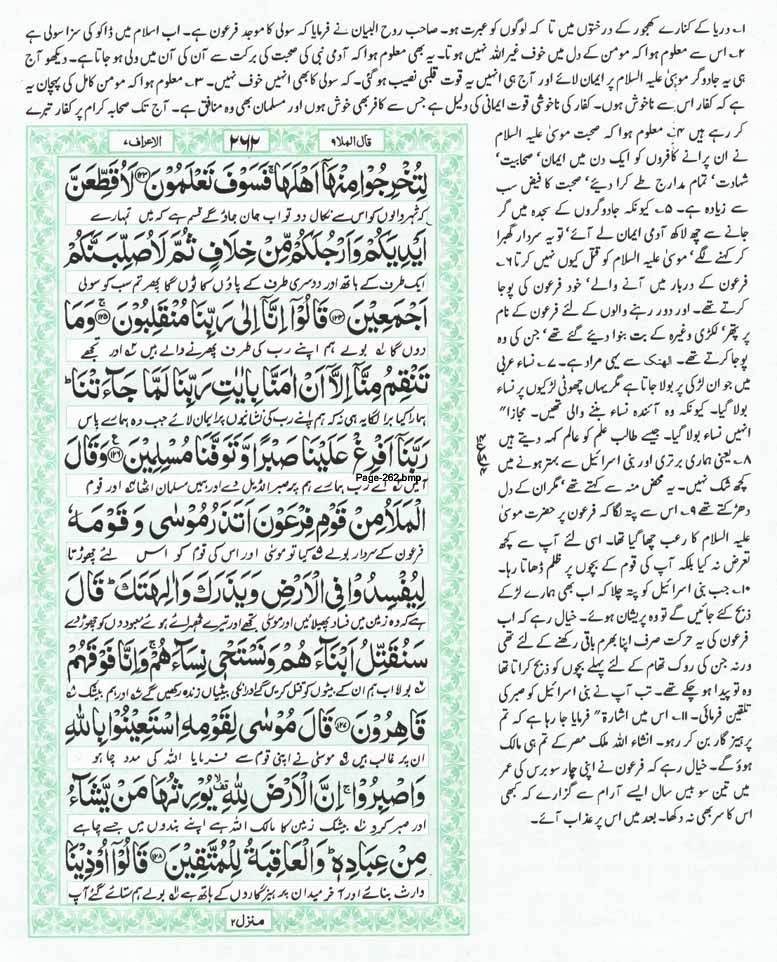 ۱؎ دریا کے کنارے کھجور کے درختوں میں تا کہ لوگوں کو عبرت ہو۔ صاحب روح البیان نے فرمایا کہ سولی کا موجد فرعون ہے۔ اب اسلام میں ڈاکو کی سزا سولی ہے
۲؎ اس سے معلوم ہوا کہ مومن کے دل میں خوف غیر اللہ نہیں ہوتا۔ یہ بھی معلوم ہوا کہ آدمی نبی کی صحبت کی برکت سے آن کی آن میں ولی ہو جاتا ہے۔ دیکھو آج
ہی یہ جادوگر موسیٰ علیہ السلام پر ایمان لائے اور آج ہی انہیں یہ قوت قلبی نصیب ہو گئی۔ کہ سولی کا بھی انہیں خوف نہیں۔ ۳؎ معلوم ہوا کہ مومن کامل کی پہچان یہ
ہے کہ کفار اس سے ناخوش ہوں۔ کفار کی ناخوشی قوت ایمانی کی دلیل ہے جس سے کافر بھی خوش ہوں اور مسلمان بھی وہ منافق ہے۔ آج تک صحابہ کرام پر کفار تبرے
کر رہے ہیں ۴؎ معلوم ہوا کہ صحبت موسیٰ علیہ السلام
نے ان پرانے کافروں کو ایک دن میں ایمان، صحابیت،
شہادت، تمام مدارج طے کرا دیئے، صحبت کا فیض سب
سے زیادہ ہے۔ ۵؎ کیونکہ جادوگروں کے سجدہ میں گر
جانے سے چھ لاکھ آدمی ایمان لے آئے، تو یہ سردار گھبرا
کر کہنے لگے، موسیٰ علیہ السلام کو قتل کیوں نہیں کرتا ۶؎
فرعون کے دربار میں آنے والے، خود فرعون کی پوجا
کرتے تھے۔ اور دور رہنے والوں کے لئے فرعون کے نام
پر پتھر، لکڑی وغیرہ کے بت بنوا دیئے گئے تھے، جن کی وہ
پوجا کرتے تھے۔ الھتک سے یہی مراد ہے۔ ۷؎ نساء عربی
میں جوان لڑکی پر بولا جاتا ہے مگر یہاں چھوٹی لڑکیوں پر نساء
بولا گیا۔ کیونکہ وہ آئندہ نساء بننے والی تھیں۔ مجازا"
انہیں نساء بولا گیا۔ جیسے طالب علم کو عالم کہہ دیتے ہیں
۸؎ یعنی ہماری برتری اور بنی اسرائیل سے بہتر ہونے میں
کچھ شک نہیں۔ یہ محض منہ سے کہتے تھے، مگر ان کے دل
دھڑکتے تھے ۹؎ اس سے پتہ لگا کہ فرعون پر حضرت موسیٰ
علیہ السلام کا رعب چھا گیا تھا۔ اسی لئے آپ سے کچھ
تعرض نہ کیا بلکہ آپ کی قوم کے بچوں پر ظلم ڈھاتا رہا۔
۱۰؎ جب بنی اسرائیل کو پتہ چلا کہ اب بھی ہمارے لڑکے
ذبح کئے جائیں گے تو وہ پریشان ہوئے۔ خیال رہے کہ اب
فرعون کی یہ حرکت صرف اپنا بھرم باقی رکھنے کے لئے تھی
ورنہ جن کی روک تھام کے لئے پہلے بچوں کو ذبح کراتا تھا
وہ تو پیدا ہو چکے تھے۔ تب آپ نے بنی اسرائیل کو صبر کی
تلقین فرمائی۔ ۱۱؎ اس میں اشارۃ" فرمایا جا رہا ہے کہ تم
پرہیز گار بن کر رہو۔ انشاء اللہ ملک مصر کے تم ہی مالک
ہوؤ گے۔ خیال رہے کہ فرعون نے اپنی چار سو برس کی عمر
میں تین سو بیس سال ایسے آرام سے گزارے کہ کبھی
اس کا سر بھی نہ دکھا۔ بعد میں اس پر عذاب آئے۔
قال الملا ۹ ۲۶۲ الاعراف ۷
لِتُخْرِجُوْا مِنْهَاۤ اَهْلَهَا ۚ فَسَوْفَ تَعْلَمُوْنَ ۝۱۲۳ لَاُقَطِّعَنَّ
کہ شہر والوں کو اس سے نکال دو تو اب جان جاؤ گے قسم ہے کہ میں تمہارے
اَیْدِیَكُمْ وَ اَرْجُلَكُمْ مِّنْ خِلَافٍ ثُمَّ لَاُصَلِّبَنَّكُمْ
ایک طرف کے ہاتھ اور دوسری طرف کے پاؤں کاٹوں گا پھر تم سب کو سولی
اَجْمَعِیْنَ ۝۱۲۴ قَالُوْۤا اِنَّاۤ اِلٰى رَبِّنَا مُنْقَلِبُوْنَ ۝۱۲۵ وَ مَا
دوں گا ۱؎ بولے ہم اپنے رب کی طرف پھرنے والے ہیں ۲؎ اور تجھے
تَنْقِمُ مِنَّاۤ اِلَّاۤ اَنْ اٰمَنَّا بِاٰیٰتِ رَبِّنَا لَمَّا جَآءَتْنَا ؕ
ہمارا کیا برا لگا یہی نہ کہ ہم اپنے رب کی نشانیوں پر ایمان لائے جب وہ ہمارے پاس
رَبَّنَاۤ اَفْرِغْ عَلَیْنَا صَبْرًا وَّ تَوَفَّنَا مُسْلِمِیْنَ ۝۱۲۶ وَ قَالَ
آئیں ۳؎ اے رب ہمارے ہم پر صبر انڈیل دے اور ہمیں مسلمان اٹھا ۴؎ اور قوم
Page-262.bmp
الْمَلَاُ مِنْ قَوْمِ فِرْعَوْنَ اَتَذَرُ مُوْسٰى وَ قَوْمَهٗ
فرعون کے سردار بولے ۵؎ کیا تو موسیٰ اور اس کی قوم کو اس لئے چھوڑتا
لِیُفْسِدُوْا فِی الْاَرْضِ وَ یَذَرَكَ وَ اٰلِهَتَكَ ؕ قَالَ
ہے کہ وہ زمین میں فساد پھیلائیں اور موسیٰ تجھے اور تیرے ٹھہرائے ہوئے معبودوں کو چھوڑ دے
سَنُقَتِّلُ اَبْنَآءَهُمْ وَ نَسْتَحْیٖ نِسَآءَهُمْ ۚ وَ اِنَّا فَوْقَهُمْ
۶؎ بولا اب ہم ان کے بیٹوں کو قتل کریں گے اور انکی بیٹیاں زندہ رکھیں گے ۷؎ اور ہم بیشک
قٰهِرُوْنَ ۝۱۲۷ قَالَ مُوْسٰى لِقَوْمِهِ اسْتَعِیْنُوْا بِاللّٰهِ
ان پر غالب ہیں ۸؎ موسیٰ نے اپنی قوم سے فرمایا اللہ کی مدد چاہو
وَ اصْبِرُوْا ۚ اِنَّ الْاَرْضَ لِلّٰهِ ۙ یُوْرِثُهَا مَنْ یَّشَآءُ
اور صبر کرو ۱۰؎ بیشک زمین کا مالک اللہ ہے اپنے بندوں میں جسے چاہے
مِنْ عِبَادِهٖ ؕ وَ الْعَاقِبَةُ لِلْمُتَّقِیْنَ ۝۱۲۸ قَالُوْۤا اُوْذِیْنَا
وارث بنائے اور آخر میدان پرہیزگاروں کے ہاتھ ہے ۱۱؎ بولے ہم ستائے گئے آپ
منزل ۲